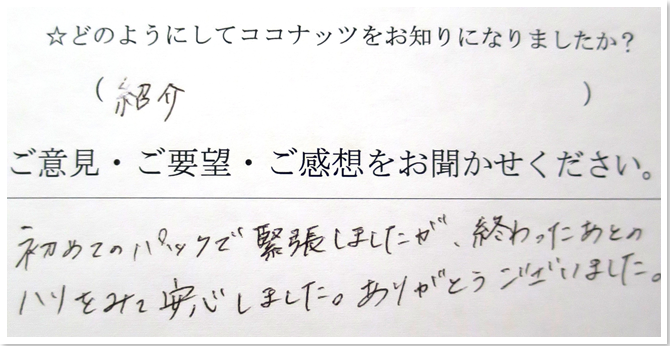 ☆どのようにしてココナッツをお知りになりましたか？
（紹介）
ご意見・ご要望・ご感想をお聞かせください。
初めてのパックで緊張しましたが、終わったあとの
ハリをみて安心しました。ありがとうございました。